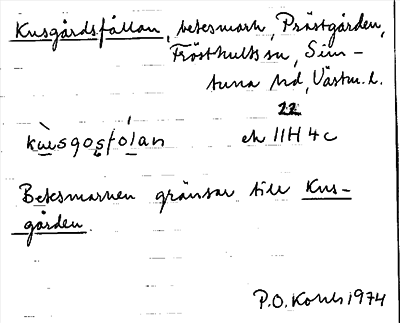 Kusgårdsfållan, betesmark, Prästgården,
Frösthults sn, Sim-
tuna hd, Västm. l.
22
kùesgosfólan ek 11H 4c
Betesmarken gränsar till Kus-
gården.
P.O. Kohls 1974